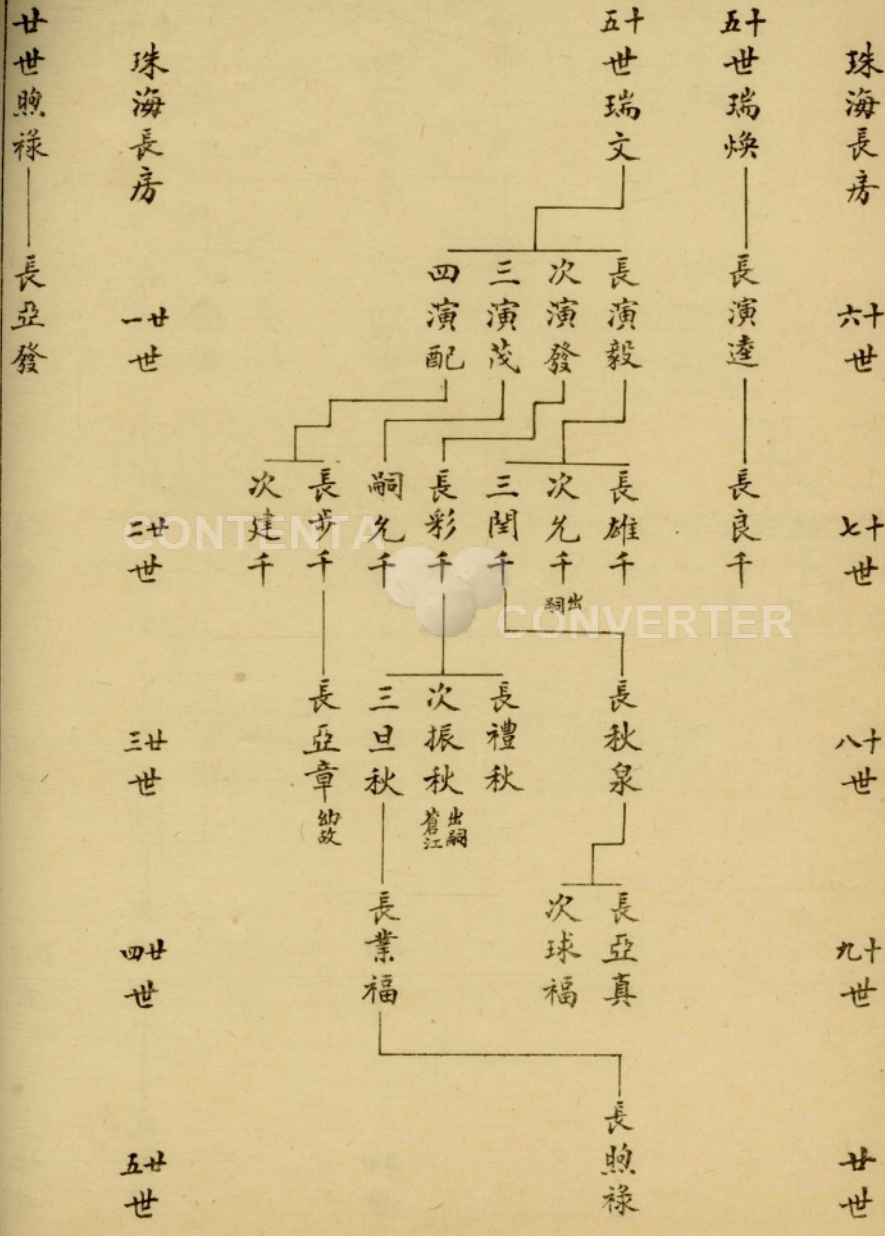 珠海長房
十六世
十七世
十八世
十九世
廿世
十五世瑞煥
長演逵
長良千
十五世瑞文
長演毅
次演發
三演茂
四演配
長雄千
次允千
出嗣
三閏千
長彩千
嗣允千
長步千
次建千
長秋泉
長禮秋
次振秋
出嗣
蒼江
三旦秋
長亞章
幼故
長亞真
次球福
長業福
長煦祿
珠海長房
廿一世
廿二世
廿三世
廿四世
廿五世
廿世煦祿
長亞發
CONTENTA
CONVERTER